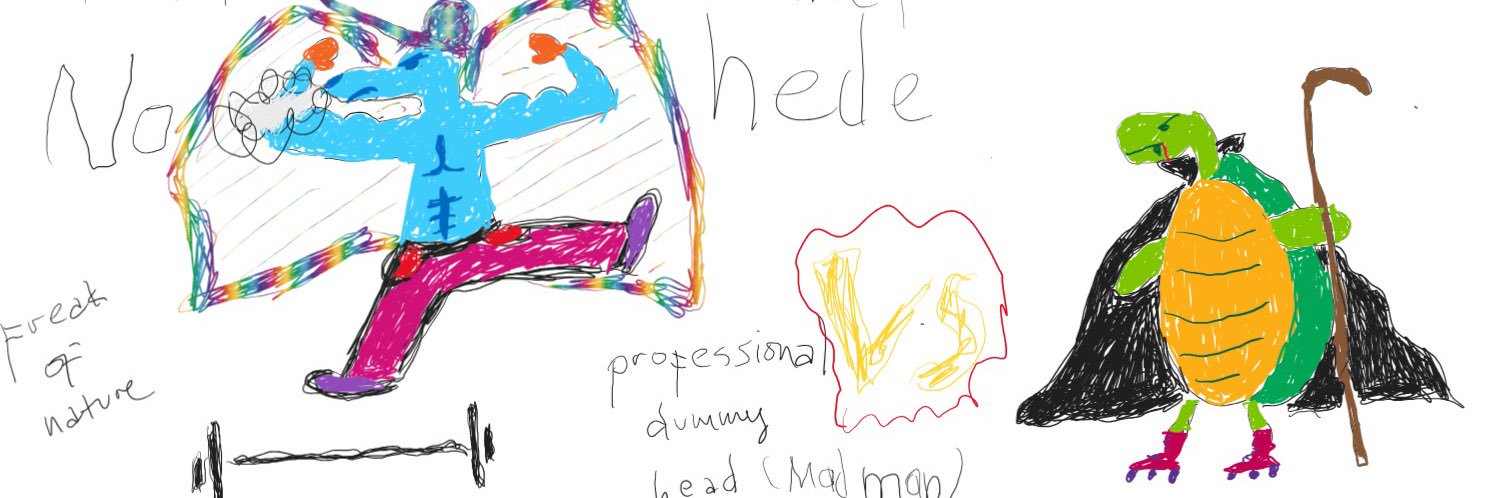 No
hede
VS
Freak
of
nature
professional
dummy
head (Mad man)